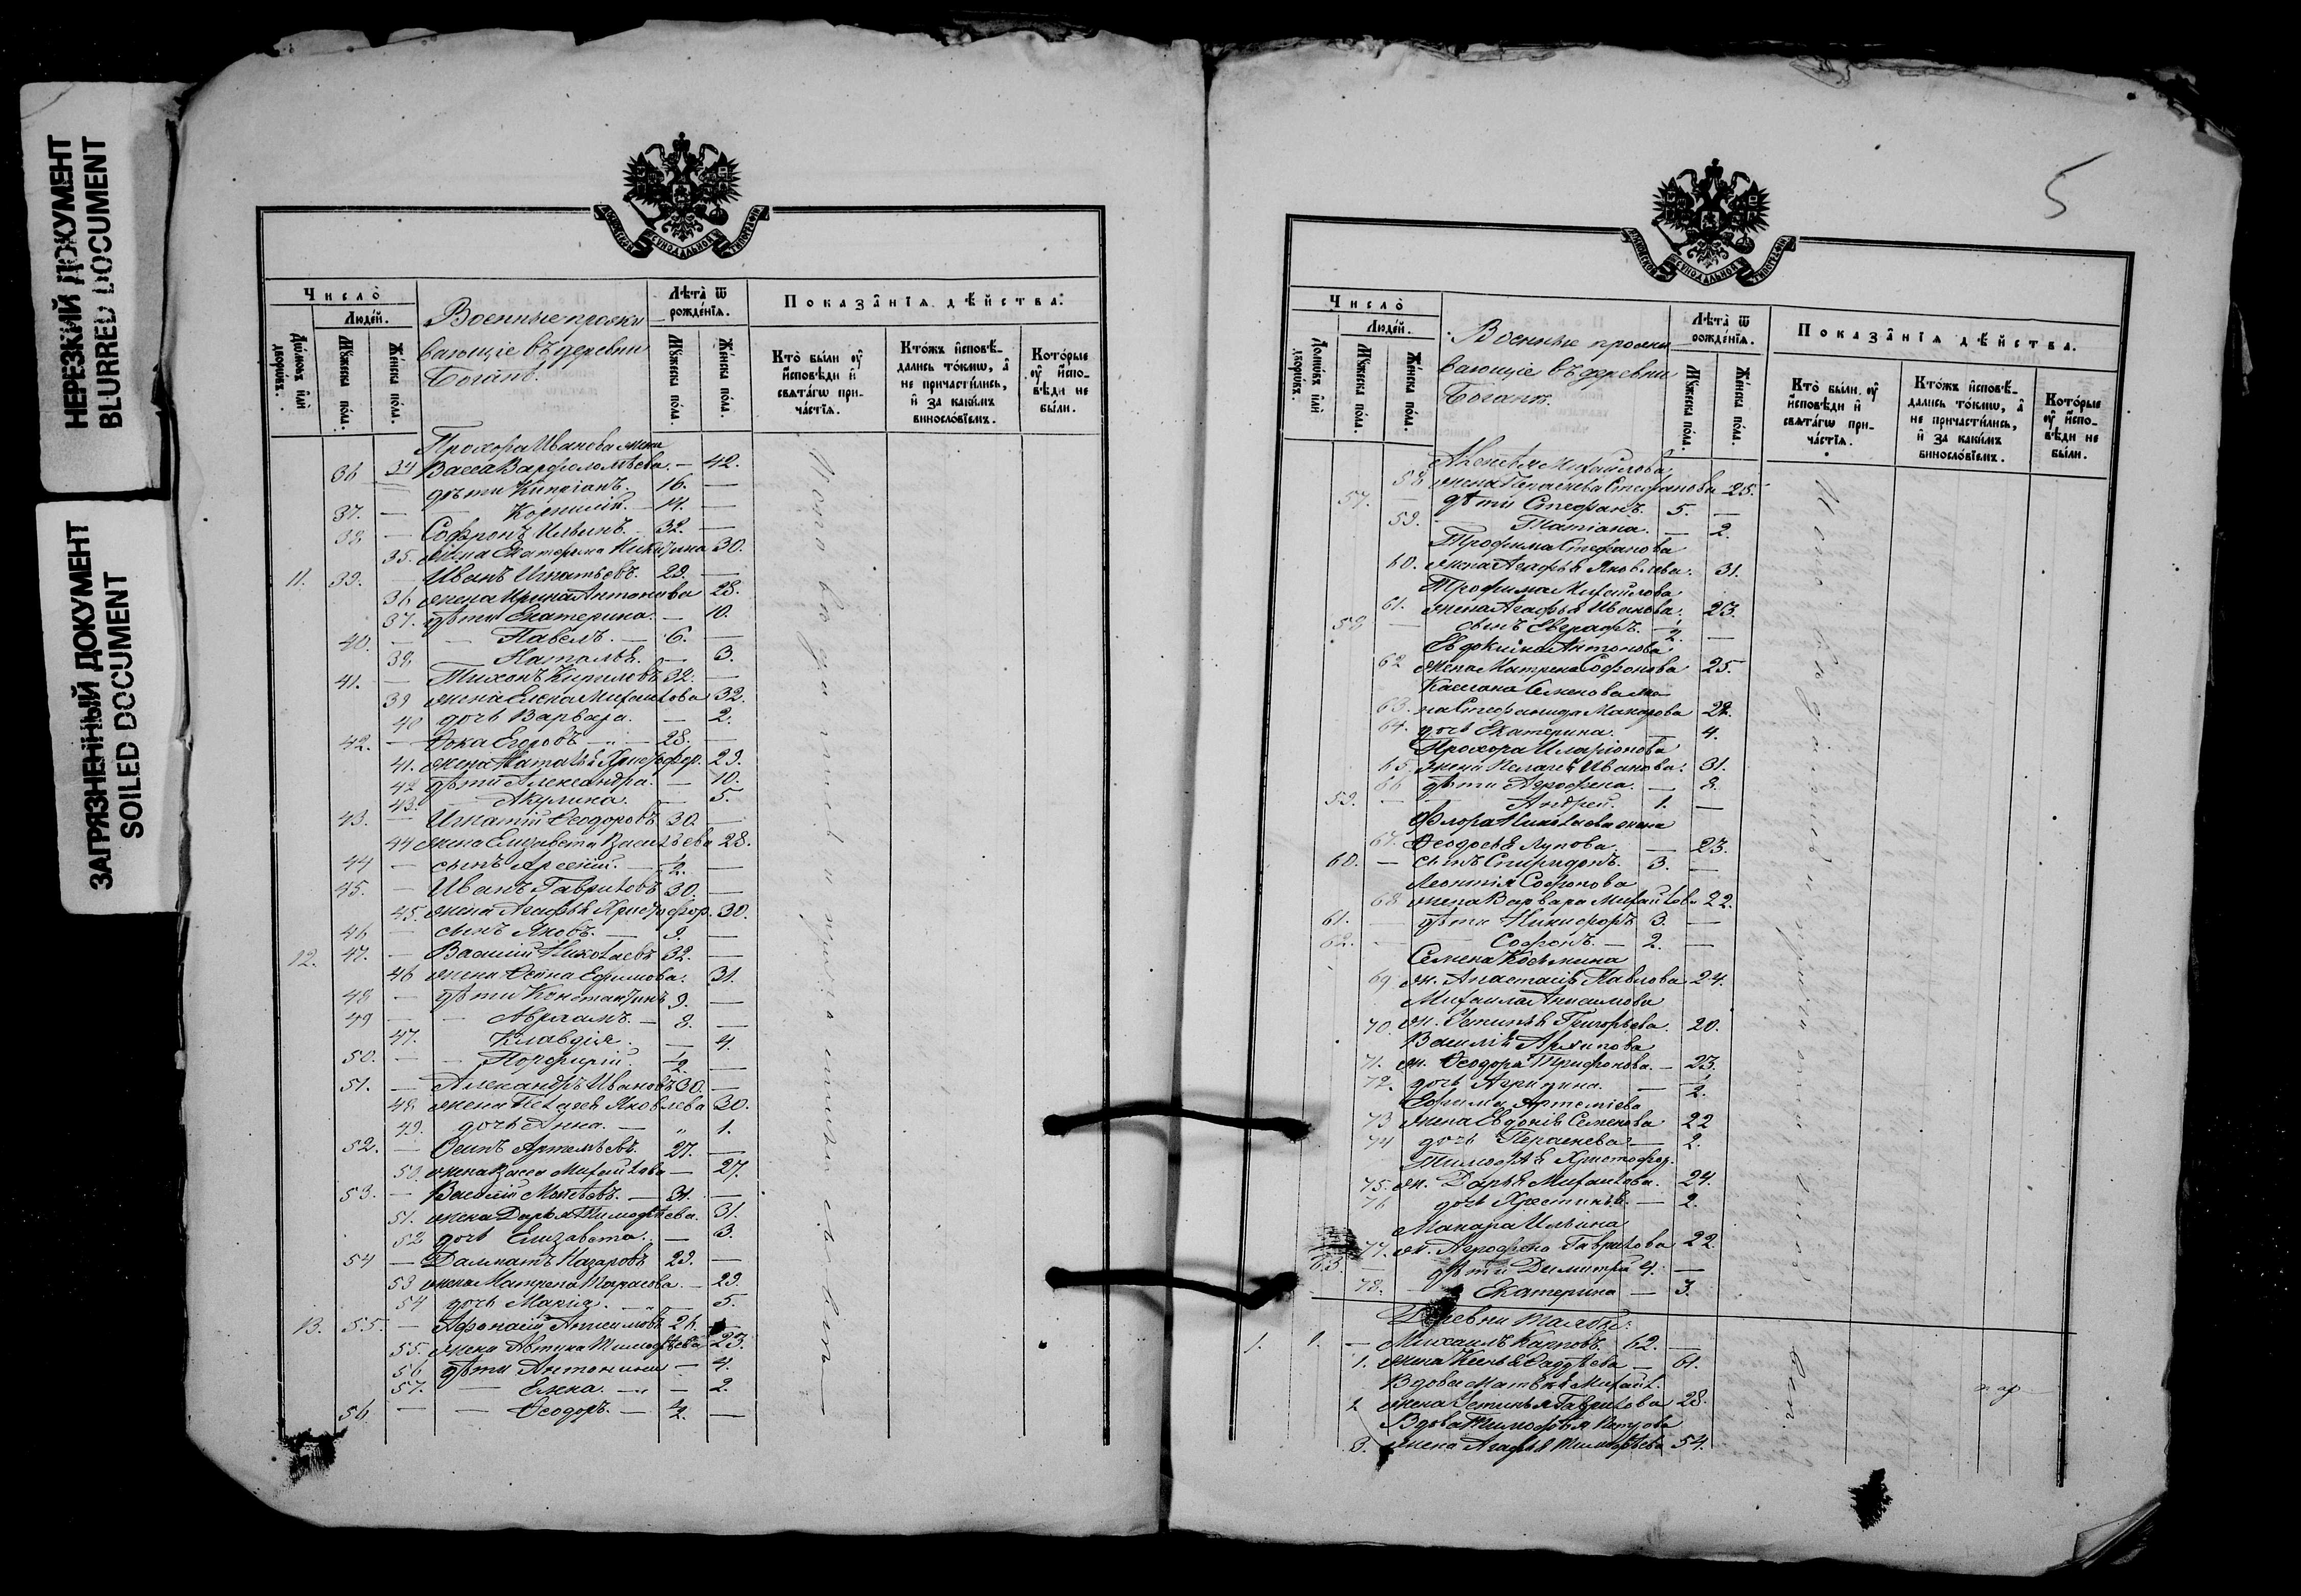 НЕРЕЗКИЙ ДОКУМЕНТ
BLURRED DOCUMENT
ЗАГРЯЗНЕННЫЙ ДОКУМЕНТ
SOILED DOCUMENT
МОСКОВСКОЙ СУНОДАЛЬНОЙ ТИПОГРАФІИ
Число̀
Людей.
Домѡвъ и҆лѝ дворѡвъ.
Мꙋжеска пола.
Женска пола.
Военные прожи
вающіе въ деревни
Лѣта̀ ѿ рожденїѧ.
Мꙋжеска пола.
Женска пола.
Показа̑нїѧ дѣйства.
Кто̀ были ᲂу҆ и҆сповѣди и҆ свѧта́гѡ прича́стїѧ.
Кто́жъ и҆сповѣ́дались то́кмѡ, а҆ не причасти́лись, и҆ за каки́мъ винословїемъ.
Которые ᲂу҆ и҆сповѣди не были.
Прохора Иванова жена
36 34 Васса Варфоломѣева. — 42.
дѣти Кипріанъ. 16. —
37. — Корнилій. — 14. —
38 — Софронъ Ильинъ. 32. —
35. жена Екатерина Никитина 30.
11. 39. — Иванъ Игнатьевъ. 29. —
36 жена Ирина Антонова 28.
37. дѣти Екатерина. — 10.
40. — Павелъ. — 6. —
38 Наталья. — 3.
41. — Тихонъ Кириловъ 32. —
39 жена Елена Михаилова 32.
40 дочь Варвара. — 2.
42. — Ѳока Егоровъ — 28. —
41. жена Наталья Христофор. 29.
42 дѣти Александра. — 10.
43. — Акулина. — 5.
43. — Игнатій Ѳеодоровъ 30. —
44 жена Елизавета Васильева 28.
44 — сынъ Арсеній. — ½. —
45. — Иванъ Гавриловъ 30. —
45. жена Агафья Христофор. 30.
46 — сынъ Яковъ. — 9. —
12. 47. — Василій Николаевъ 32. —
46 жена Ефимова. 31.
48 — дѣти Константинъ 9. —
49 — Авраамъ. — 8. —
47. Клавдія. — 4.
50. — Порфирій. ½ —
51. — Александръ Ивановъ 30. —
48 жена Пелагея Яковлева 30.
49. дочь Анна. — 1.
52. — Артемьевъ. 27. —
50. жена Васса Михаилова — 27.
53. — Василій — 31. —
51. жена Дарья Тимоѳеева. 31.
52 дочь Елизавета. — 3.
54 — Далматъ Назаровъ 29. —
53 жена Матрена Тарасова. — 29.
54 дочь Марія. — 5.
13. 55. — Афанасій Анисимовъ 26.
55. жена Тимоѳеева 23.
56 дѣти Антонина — 4.
57. — Елена. — 2.
56. — Ѳеодоръ. — ½. —
5
МОСКОВСКОЙ СУНОДАЛЬНОЙ ТИПОГРАФІИ
Число̀
Людей.
Домѡвъ и҆лѝ дворѡвъ.
Мꙋжеска пола.
Женска пола.
Военные прожи
вающіе въ деревни
Лѣта̀ ѿ рожденїѧ.
Мꙋжеска пола.
Женска пола.
Показа̑нїѧ дѣйства.
Кто̀ были ᲂу҆ и҆сповѣди и҆ свѧта́гѡ прича́стїѧ.
Кто́жъ и҆сповѣ́дались то́кмѡ, а҆ не причасти́лись, и҆ за каки́мъ винословїемъ.
Которые ᲂу҆ и҆сповѣди не были.
Михайлова
58 жена Стефанова 25.
57. — дѣти Стефанъ. 5. —
59. Татіана. — 2.
Трофима Стефанова
60. жена Агафья Яковлева. 31.
Трофима Михайлова
61. жена Агафья Иванова. 23.
58 — сынъ Евграфъ. ½. —
Евдокима Антонова
62 жена Матрена Софронова 25.
Кассіана Семенова же
63. на Стефанида Макарова 22.
64. дочь Екатерина. — 4.
Прохора Иларіонова
65. жена Пелагея Иванова. 31.
66 дѣти Агрофена. — 8.
59. — Андрей. 1. —
Флора Николаева жена
67. Ѳеодосья Лупова — 23.
60. — сынъ Спиридонъ. 3. —
Леонтія Софронова
68 жена Варвара Михайлов 22.
61. — дѣти Никифоръ 3. —
62. — Софронъ. — 2. —
Семена Козьмина
69 ж. Анастасія Павлова 24.
Михаила Анисимова
70. ж. Устинья Григорьева. 20.
Василія Архипова
71. ж. Ѳеодора Трифонова. — 23.
72. дочь Агрипина. — ½.
Ефима Артеміева
73 жена Евдокія Семенова 22
74 дочь — 2.
Тимоѳея Христофор.
75. ж. Дарья Михаилова. 24.
76 дочь Христинья. — 2.
Макара Ильина
77. ж. Агрофена Гаврилова 22.
63. — дѣти Димитрій 4. —
78. — Екатерина — 3.
Деревни
1. 1. — Михаилъ Карповъ. 62. —
1. жена Ксенья Ѳаддѣева — 61.
Вдова Матвея Михаил.
2 жена Устинья Гаврилова 28.
Вдова Тимофея
3. жена Агафья Тимоѳеева 54.